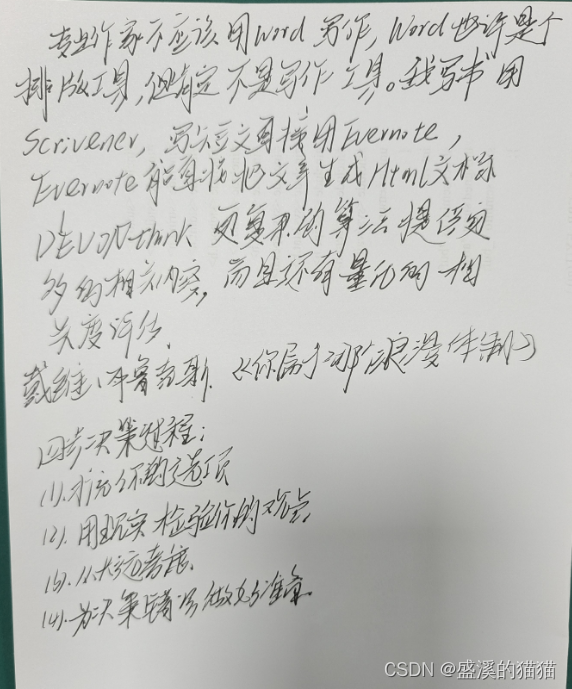 专业作家不应该用Word写作,Word也许是个
排版工具,但肯定不是写作工具。我写书用
Scrivener,写短文直接用Evernote,
Evernote能直接把文章生成Html文档
DEVONthink 更复杂的算法提供更
多的相关内容,而且还有量化的相
关度评分.
戴维·布鲁克斯.《你属于哪个浪漫体制》
四步决策过程:
(1).扩充你的选项
(2).用现实检验你的观点.
(3).从长远考虑.
(4).为决策错误做好准备.
CSDN @盛溪的猫猫